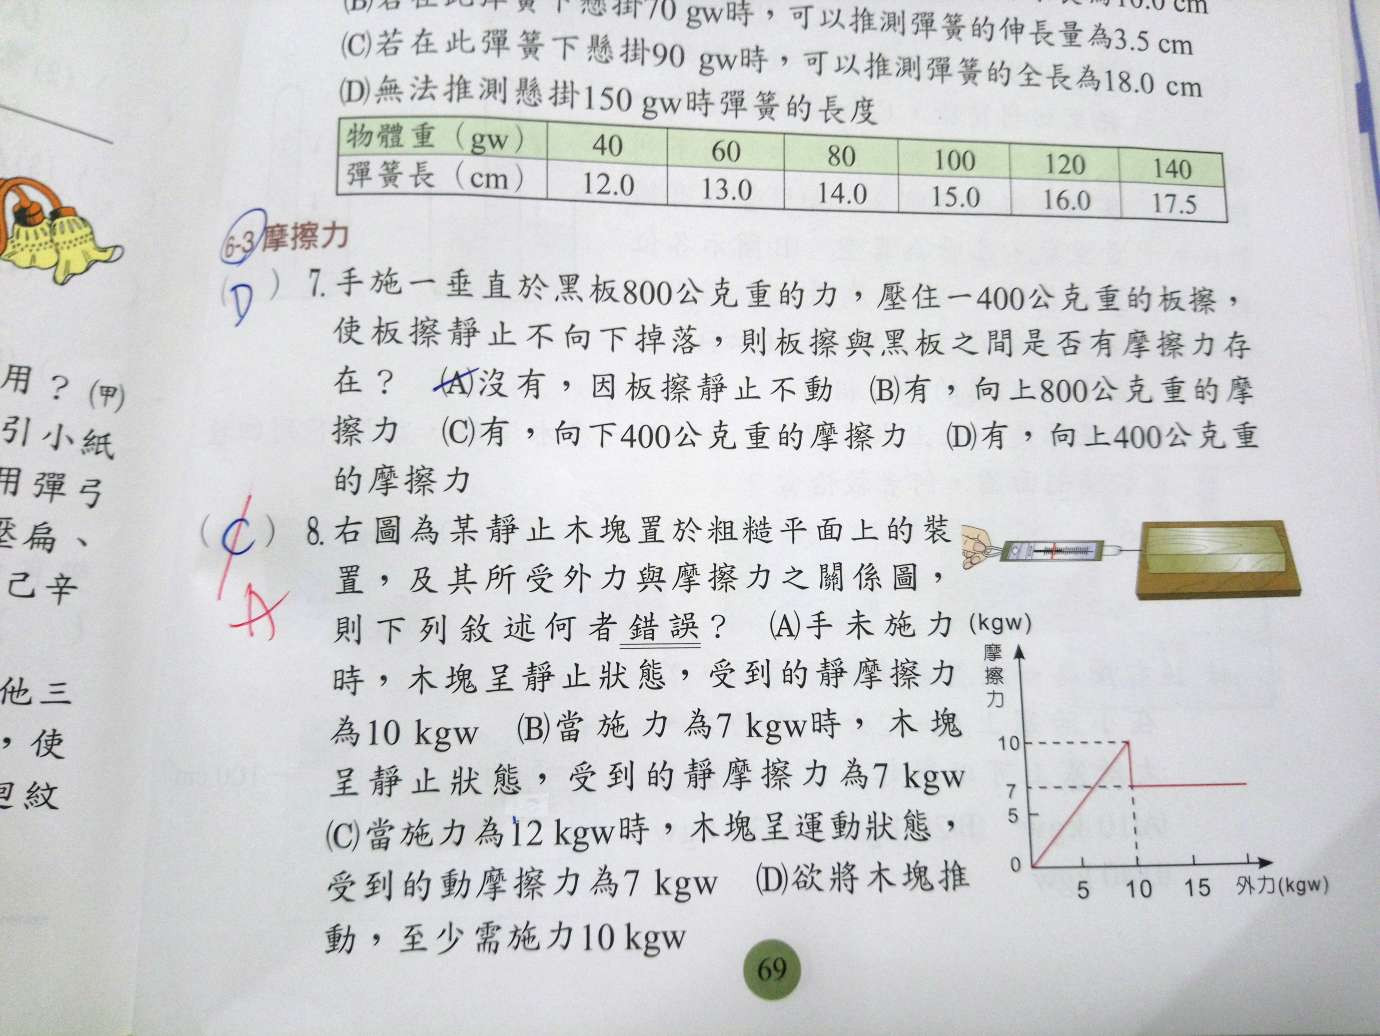 (B)若在此彈簧下懸掛70 gw時，可以推測彈簧的伸長量為3.5 cm
(C)若在此彈簧下懸掛90 gw時，可以推測彈簧的全長為18.0 cm
(D)無法推測懸掛150 gw時彈簧的長度
物體重（gw） 40 60 80 100 120 140
彈簧長（cm） 12.0 13.0 14.0 15.0 16.0 17.5
6-3 摩擦力
(D) 7. 手施一垂直於黑板800公克重的力，壓住一400公克重的板擦，
使板擦靜止不向下掉落，則板擦與黑板之間是否有摩擦力存
在？ (A)沒有，因板擦靜止不動 (B)有，向上800公克重的摩
擦力 (C)有，向下400公克重的摩擦力 (D)有，向上400公克重
的摩擦力
(C) 8. 右圖為某靜止木塊置於粗糙平面上的裝
A
置，及其所受外力與摩擦力之關係圖，
則下列敘述何者錯誤？ (A)手未施力
時，木塊呈靜止狀態，受到的靜摩擦力
為10 kgw (B)當施力為7 kgw時，木塊
呈靜止狀態，受到的靜摩擦力為7 kgw
(C)當施力為12 kgw時，木塊呈運動狀態，
受到的動摩擦力為7 kgw (D)欲將木塊推
動，至少需施力10 kgw
(kgw)
摩擦力
10
7
5
0
5 10 15 外力(kgw)
69
用？(甲)
引小紙
用彈弓
壓扁、
己辛
他三
，使
迴紋